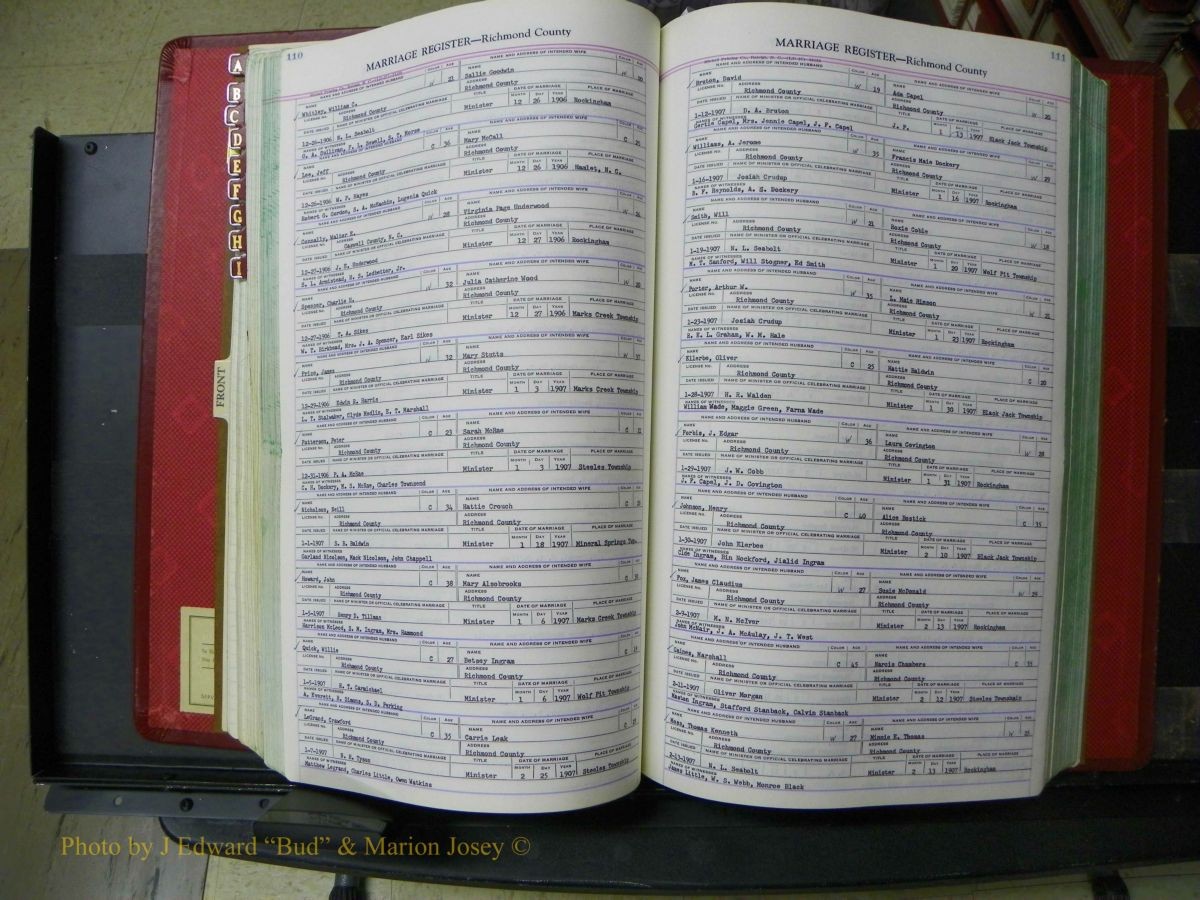 A
B
C
D
E
F
G
H
I
FRONT
110
MARRIAGE REGISTER—Richmond County
NAME AND ADDRESS OF INTENDED HUSBAND COLOR AGE NAME AND ADDRESS OF INTENDED WIFE
Whitley, William C. 21 Sallie Goodwin W 20
Richmond County Richmond County
12-26-1906 H. L. Seabolt Minister 12 26 1906 Rockingham
Lee, Jeff C 36 Mary McCall C
Richmond County Richmond County
12-26-1906 W. F. Hayes Minister 12 26 1906 Hamlet, N. C.
Robert G. Gordon, S. A. McEachin, Lugenia Quick
Connally, Walter E. W 28 Virginia Page Underwood W
Caswell County, N. C. Richmond County
12-27-1906 J. E. Underwood Minister 12 27 1906 Rockingham
E. L. Armistead, H. S. Ledbetter, Jr.
Spencer, Charlie H. W 32 Julia Catherine Wood W 20
Richmond County Richmond County
12-27-1906 T. A. Sikes Minister 12 27 1906 Marks Creek Township
W. T. Birkhead, Mrs. J. A. Spencer, Earl Sikes
Price, James W 32 Mary Stutts W
Richmond County Richmond County
Edwin R. Harris Minister 1 3 1907 Marks Creek Township
L. T. Stalwahr, Clyde Medlin, E. T. Marshall
Patterson, Peter C 23 Sarah McRae C
Richmond County Richmond County
12-31-1906 P. A. McRae Minister 1 3 1907 Steeles Township
C. H. Dockery, M. S. McRae, Charles Townsend
Nicholson, Neill C 34 Hattie Crouch C
Richmond County Richmond County
1-1-1907 S. B. Baldwin Minister 1 18 1907 Mineral Springs Twp.
Garland Nicolson, Mack Nicolson, John Chappell
Howard, John C 38 Mary Alsobrooks C
Richmond County Richmond County
1-5-1907 Henry D. Tillman Minister 1 6 1907 Marks Creek Township
Harrison McLeod, D. M. Ingram, Mrs. Hammond
Quick, Willis C 27 Betsey Ingram C
Richmond County Richmond County
1-5-1907 H. T. Carmichael Minister 1 6 1907 Wolf Pit Township
A. Everett, R. Simons, S. D. Perking
LeGrand, Crawford C 35 Carrie Leak C
Richmond County Richmond County
1-7-1907 R. B. Tyson Minister 2 25 1907 Steeles Township
Matthew Legrand, Charles Little, Owen Watkins
111
MARRIAGE REGISTER—Richmond County
NAME AND ADDRESS OF INTENDED HUSBAND COLOR AGE NAME AND ADDRESS OF INTENDED WIFE
Bruton, David W 19 Ada Capel W 20
Richmond County Richmond County
1-12-1907 D. A. Bruton J. P. 1 13 1907 Black Jack Township
Carlie Capel, Mrs. Jennie Capel, J. F. Capel
Williams, A. Jerome W 35 Francis Maie Dockery W 27
Richmond County Richmond County
1-16-1907 Josiah Crudup Minister 1 16 1907 Rockingham
H. F. Reynolds, A. S. Dockery
Smith, Will W 21 Roxie Coble W 18
Richmond County Richmond County
1-19-1907 N. L. Seabolt Minister 1 20 1907 Wolf Pit Township
M. T. Sanford, Will Stogner, Ed Smith
Porter, Arthur W. W 35 L. Maie Hinson W 21
Richmond County Richmond County
1-23-1907 Josiah Crudup Minister 1 23 1907 Rockingham
R. K. L. Graham, W. M. Hale
Ellerbe, Oliver C 25 Mattie Baldwin C 20
Richmond County Richmond County
1-28-1907 H. R. Walden Minister 1 30 1907 Black Jack Township
William Wade, Maggie Green, Farna Wade
Forbis, J. Edgar W 36 Laura Covington W 28
Richmond County Richmond County
1-29-1907 J. W. Cobb Minister 1 31 1907 Rockingham
J. F. Capel, J. D. Covington
Johnson, Henry C 40 Alice Bostick C 35
Richmond County Richmond County
1-30-1907 John Elerbee Minister 2 10 1907 Black Jack Township
Cide Ingram, Bin Nockford, Jialid Ingram
Fox, James Claudius W 27 Susie McDonald W 25
Richmond County Richmond County
2-9-1907 M. N. McIver Minister 2 13 1907 Rockingham
John McNair, J. A. McAulay, J. T. West
Gaines, Marshall C 45 Narcis Chambers C 35
Richmond County Richmond County
2-11-1907 Oliver Morgan Minister 2 12 1907 Steeles Township
Masten Ingram, Stafford Stanback, Calvin Stanback
Moss, Thomas Kenneth W 27 Minnie E. Thomas W 25
Richmond County Richmond County
2-13-1907 N. L. Seabolt Minister 2 13 1907 Rockingham
James Little, W. S. Webb, Monroe Black
Photo by J Edward “Bud” & Marion Josey ©